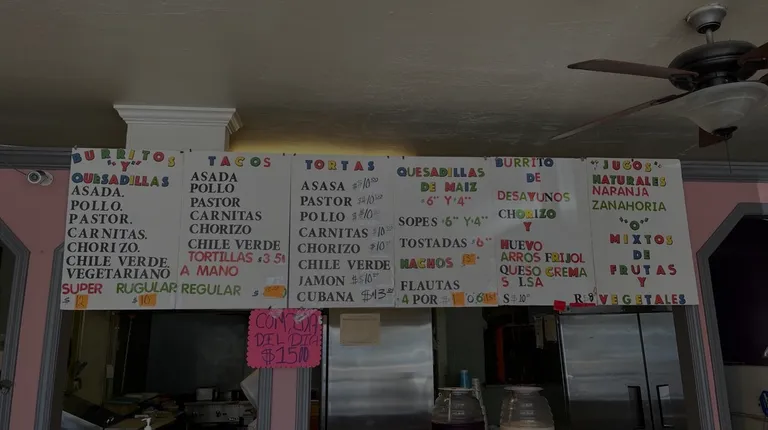 BURRITOS
"Y"
QUESADILLAS
ASADA.
POLLO.
PASTOR.
CARNITAS.
CHORIZO.
CHILE VERDE.
VEGETARIANO
SUPER RUGULAR
TACOS
ASADA
POLLO
PASTOR
CARNITAS
CHORIZO
CHILE VERDE
TORTILLAS $3.5
A MANO
REGULAR $
TORTAS
ASASA $10
PASTOR $10
POLLO $10
CARNITAS $10
CHORIZO $10
CHILE VERDE
JAMON $10
CUBANA $13
QUESADILLAS
DE MAIZ
"6" Y "4"
SOPES "6" Y "4"
TOSTADAS "6"
NACHOS
FLAUTAS
4 POR
BURRITO
DE
DESAYUNOS
CHORIZO
Y
HUEVO
ARROS FRIJOL
QUESO CREMA
S LSA
S $10
"JUGOS"
NATURALES
NARANJA
ZANAHORIA
"O"
MIXTOS
DE
FRUTAS
Y
VEGETALES
COMIDA
DEL DIA
$15